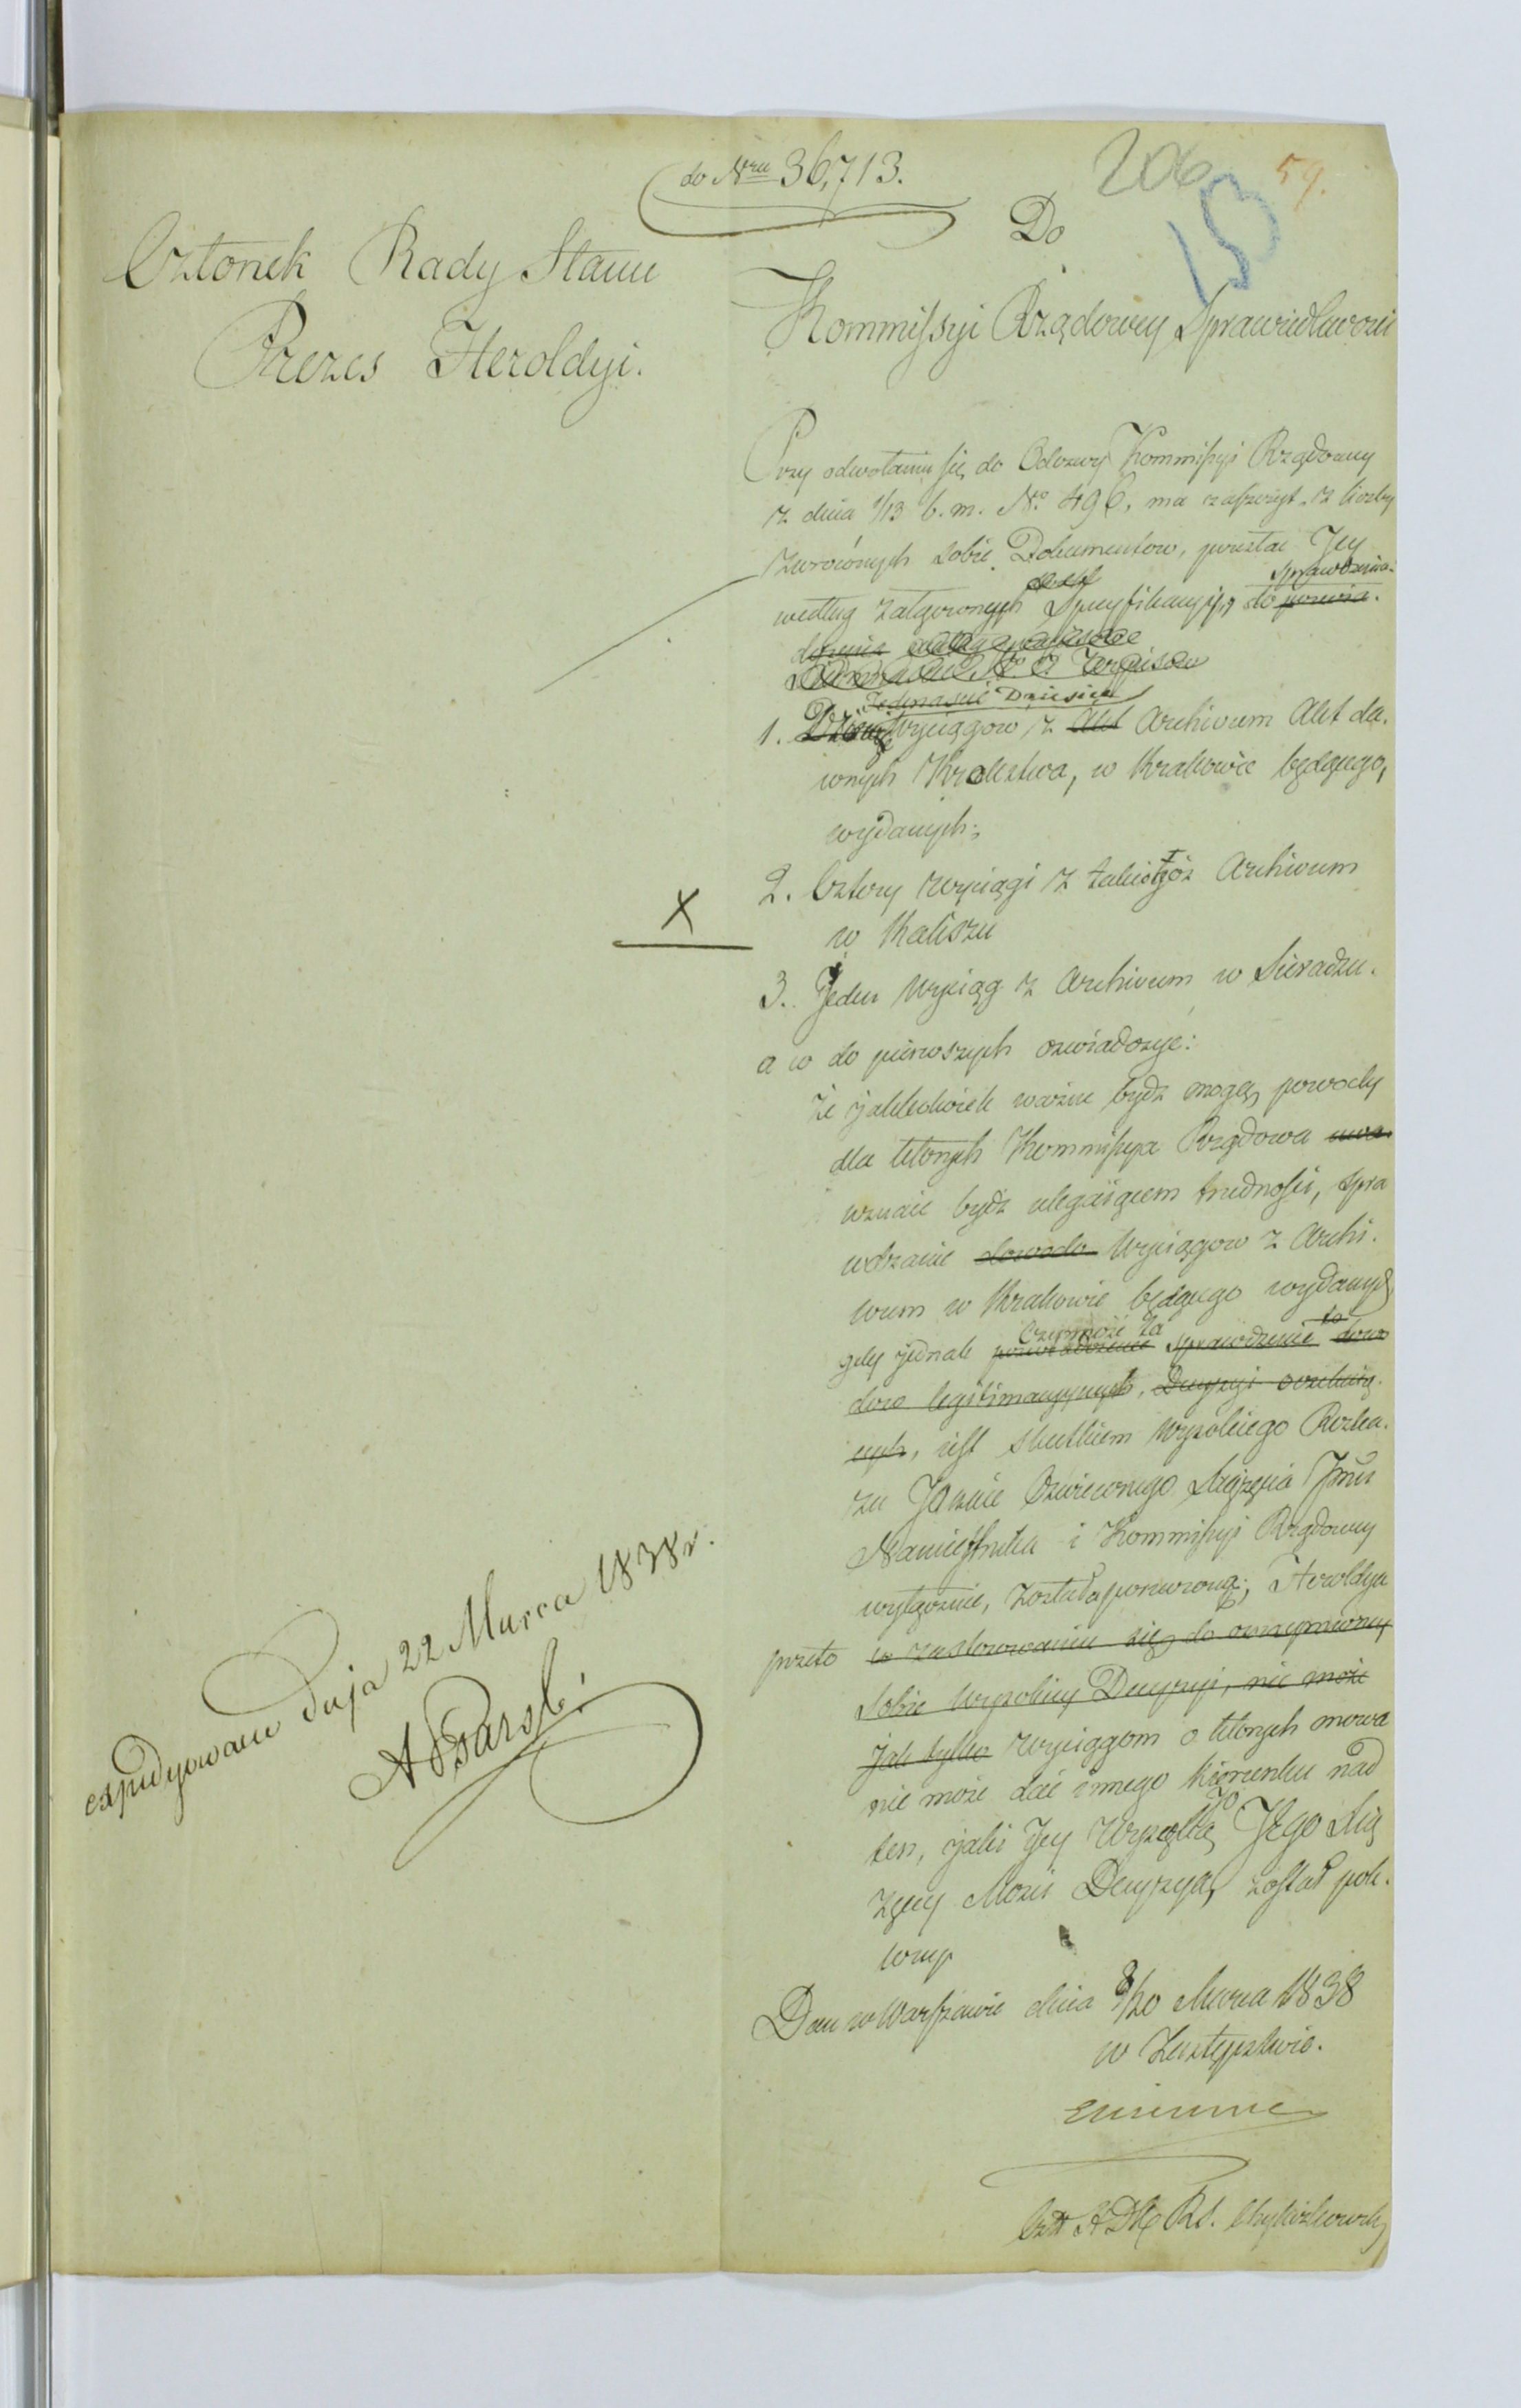 do Nru 36,713.
206
59.
153
Członek Rady Stanu
Prezes Heroldyi.
Do
Kommissyi Rządowey Sprawiedliwości
Przy odwołaniu się do Odezwy Kommissyi Rządowey
z dnia 1/13 b.m. No 496, ma zaszczyt z liczby
zwróconych sobie Dokumentow, przesłać Jey
sprawdzenia
według załączonych Specyfikacyi, do powia-
dzenia
Jedenaście Dziesięć
1. Wyciągow z Akt Archivum Akt da-
wnych Krolestwa, w Krakowie będącego,
wydanych;
2. Cztery wyciągi z takiegoż Archivum
w Kaliszu
X
3. Jeden Wyciąg z Archivum w Sieradzu.
a co do pierwszych oświadczyć:
że jakkolwiek ważne bydź mogą powody
dla ktorych Kommissya Rządowa uwa
uznaie bydź ulegaiącem trudności, spra
wdzenie dowodo Wyciągow z Archi-
wum w Krakowie będącego wydanych
gdy jednak sprawdzenie dowo
dow legitimacyjnych, Decyzyi oczekuią-
cych, iest skutkiem Wysokiego Rozka-
zu Jaśnie Oświeconego Xiążęcia Jmci
Namiestnika i Kommissyi Rządowey
wyłącznie, została poruczoną; Heroldya
przeto w zastosowaniu się do otrzymaney
sobie Wysokiey Decyzyi, nie może
jak tylko Wyciągom o ktorych mowa
nie może dać innego kierunku nad
ten, jaki Jey Wysoką Jego Xią
żęcey Mości Decyzyą, został
Dan w Warszawie dnia 8/20 Marca 1838
w Zastępstwie.
expedyowano dnia 22 Marca 1838 r.